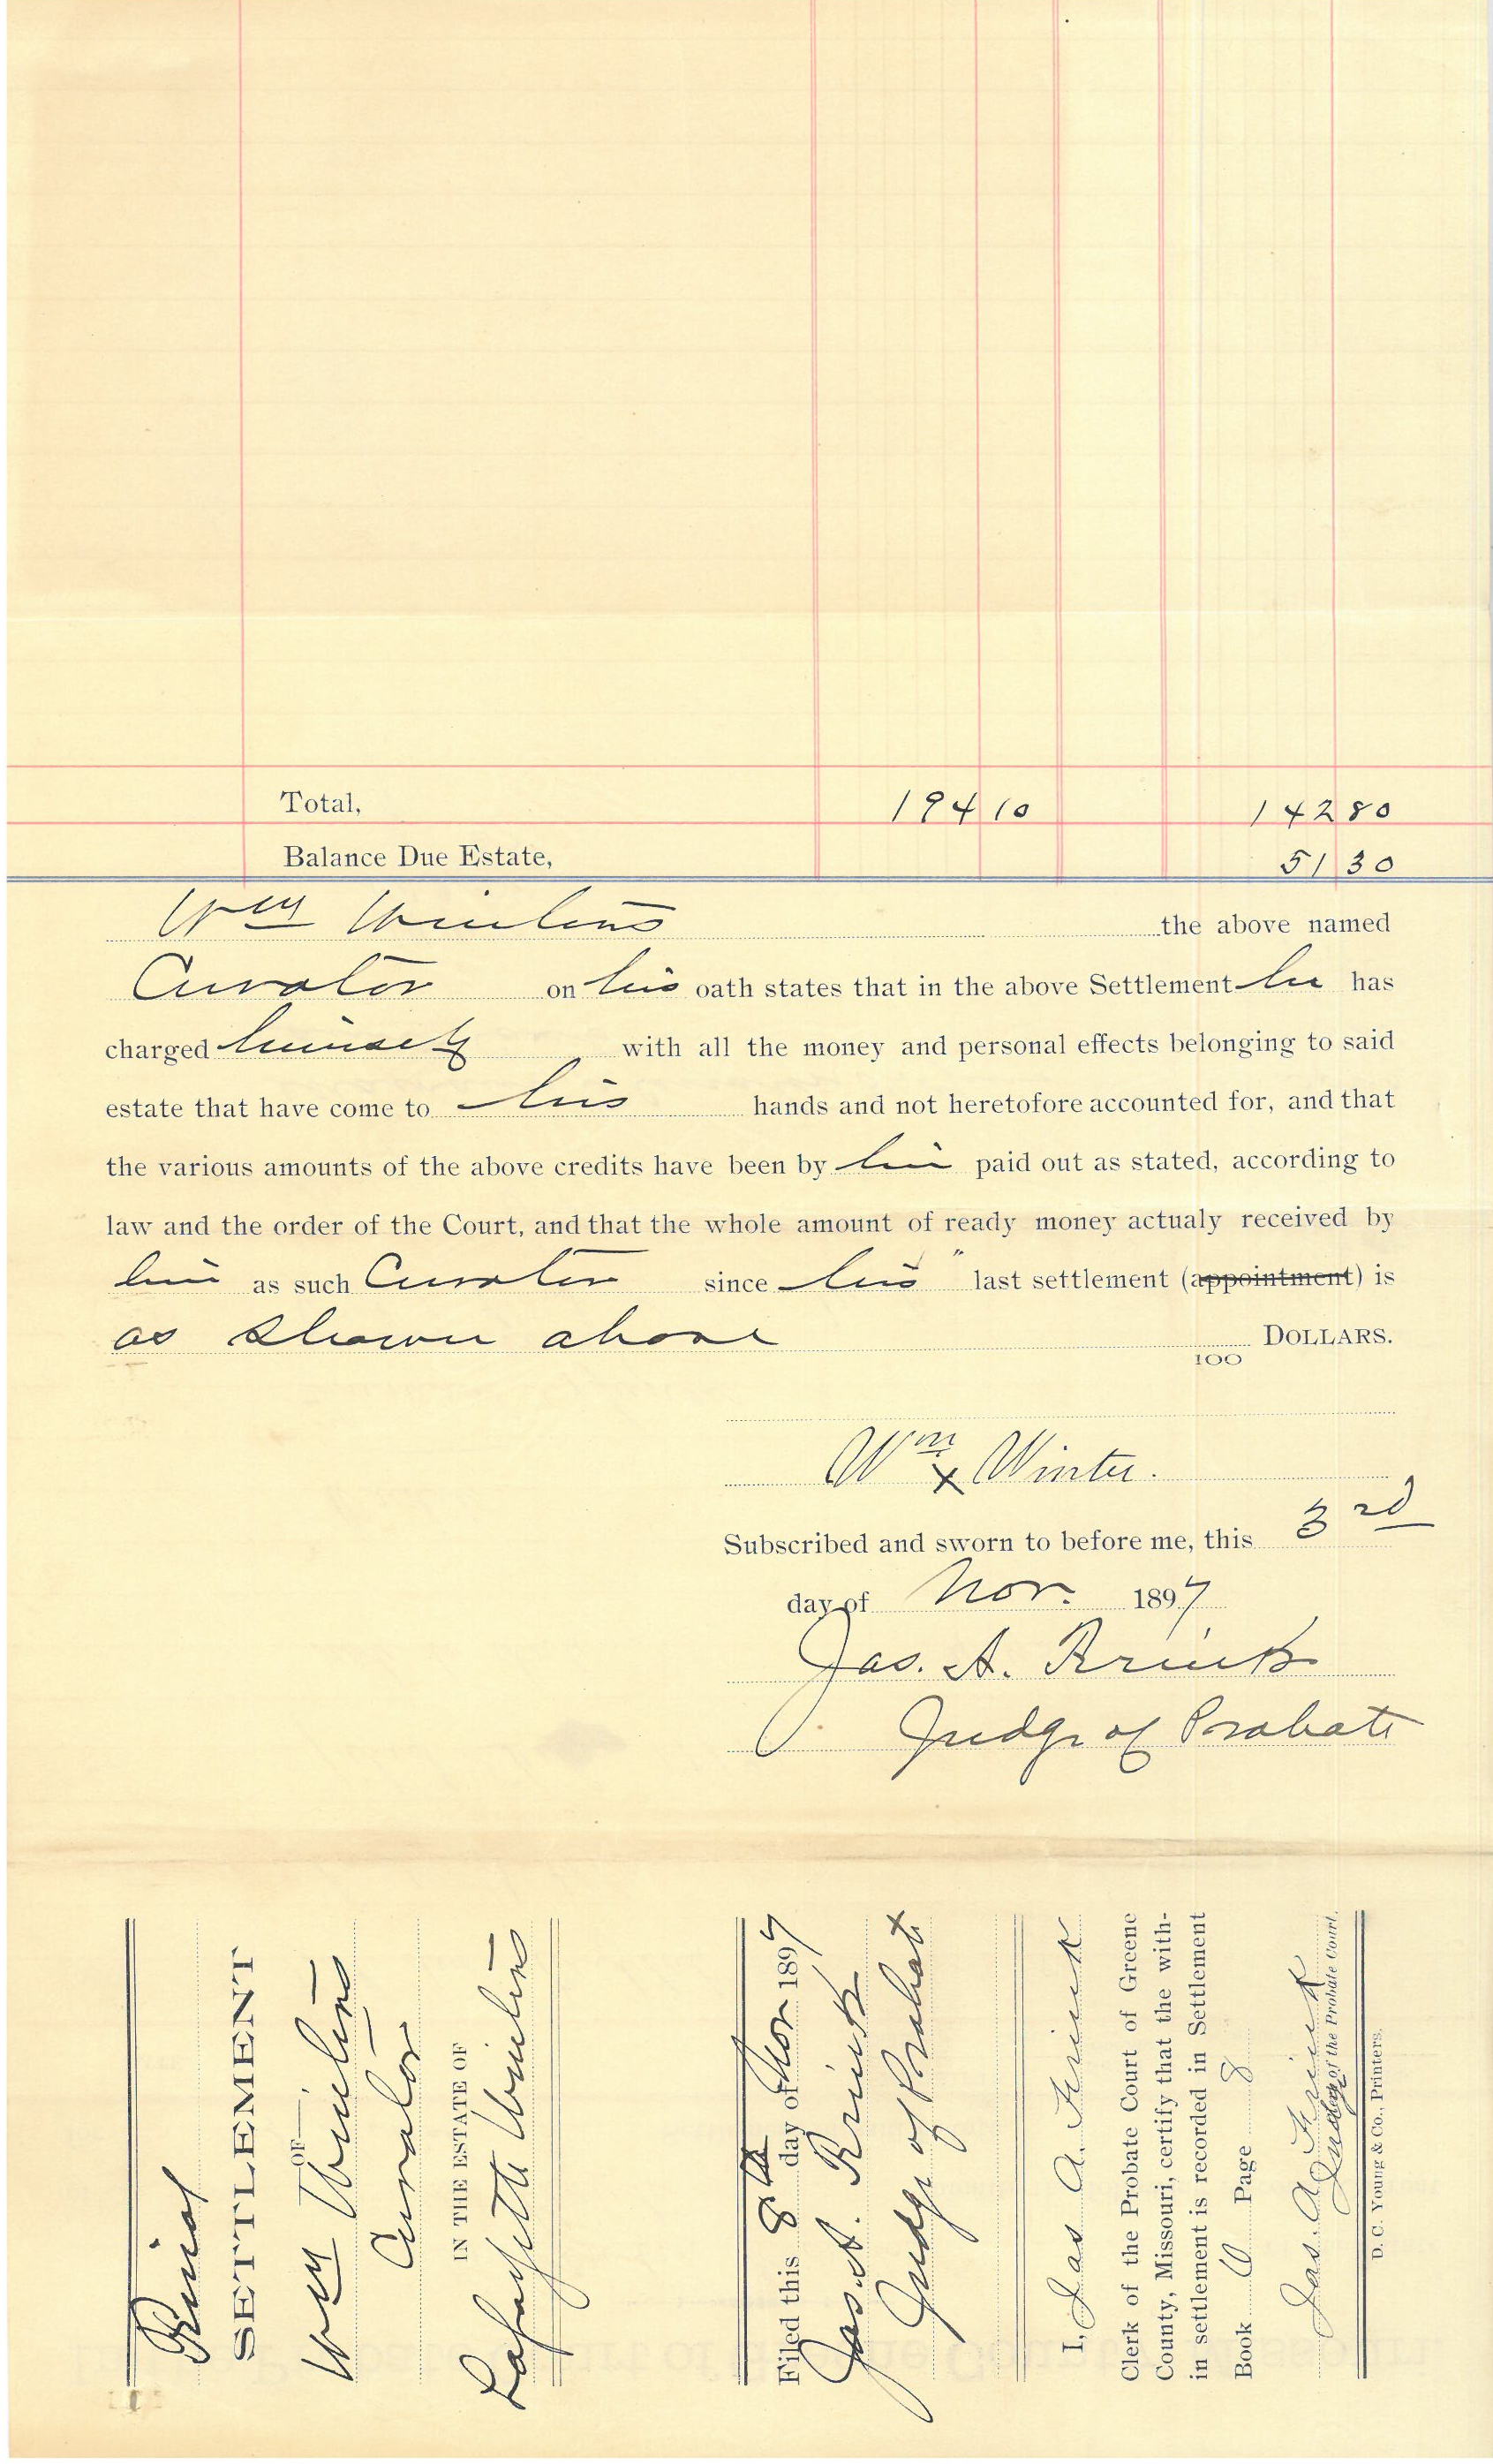 Total, 194 10 142 80
Balance Due Estate, 51 30
Wm Winters the above named
Curator on his oath states that in the above Settlement he has
charged himself with all the money and personal effects belonging to said
estate that have come to his hands and not heretofore accounted for, and that
the various amounts of the above credits have been by him paid out as stated, according to
law and the order of the Court, and that the whole amount of ready money actualy received by
him as such Curator since his last settlement (appointment) is
as shown above 100 DOLLARS.
Wm x Winter.
Subscribed and sworn to before me, this 3rd
day of Nov. 1897
Jas. A. Frink
Judge of Probate
Final
SETTLEMENT
OF
Wm Winters
Curator
IN THE ESTATE OF
Lafayette Winters
Filed this 8th day of Nov 1897
Jas. A. Frink
Judge of Probate
I, Jas A. Frink
Clerk of the Probate Court of Greene
County, Missouri, certify that the with-
in settlement is recorded in Settlement
Book Page 8
Jas. A. Frink
Judge of the Probate Court.
D. C. Young & Co., Printers.